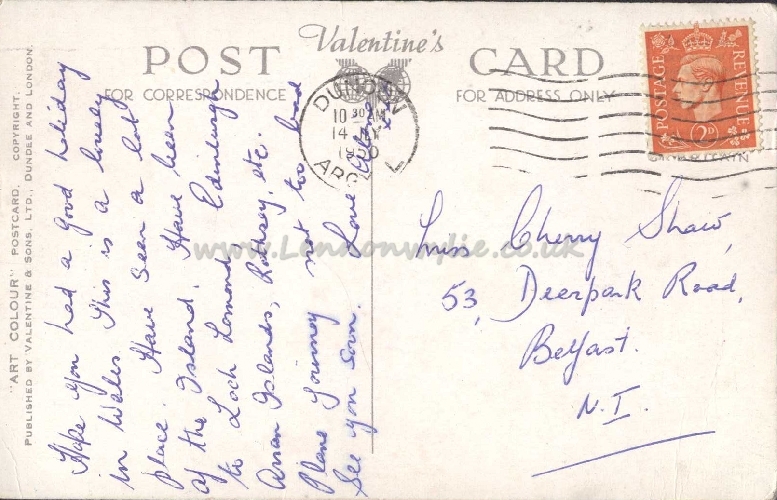 POST Valentine's CARD
FOR CORRESPONDENCE
FOR ADDRESS ONLY
"ART COLOUR" POSTCARD. COPYRIGHT.
PUBLISHED BY VALENTINE & SONS, LTD., DUNDEE AND LONDON.
Hope you had a good holiday
in Wales. This is a lovely
place. Have seen a lot
of the Island. Have been
to Loch Lomond, Edinburgh
Arran Islands, Rothsey, etc.
Plane journey not too bad
See you soon. Love
DUNOON
10 30 AM
14
1950
ARGYLL
POSTAGE REVENUE
2D
Miss Cherry Shaw,
53, Deerpark Road,
Belfast.
N.I.
www.Lennonwylie.co.uk